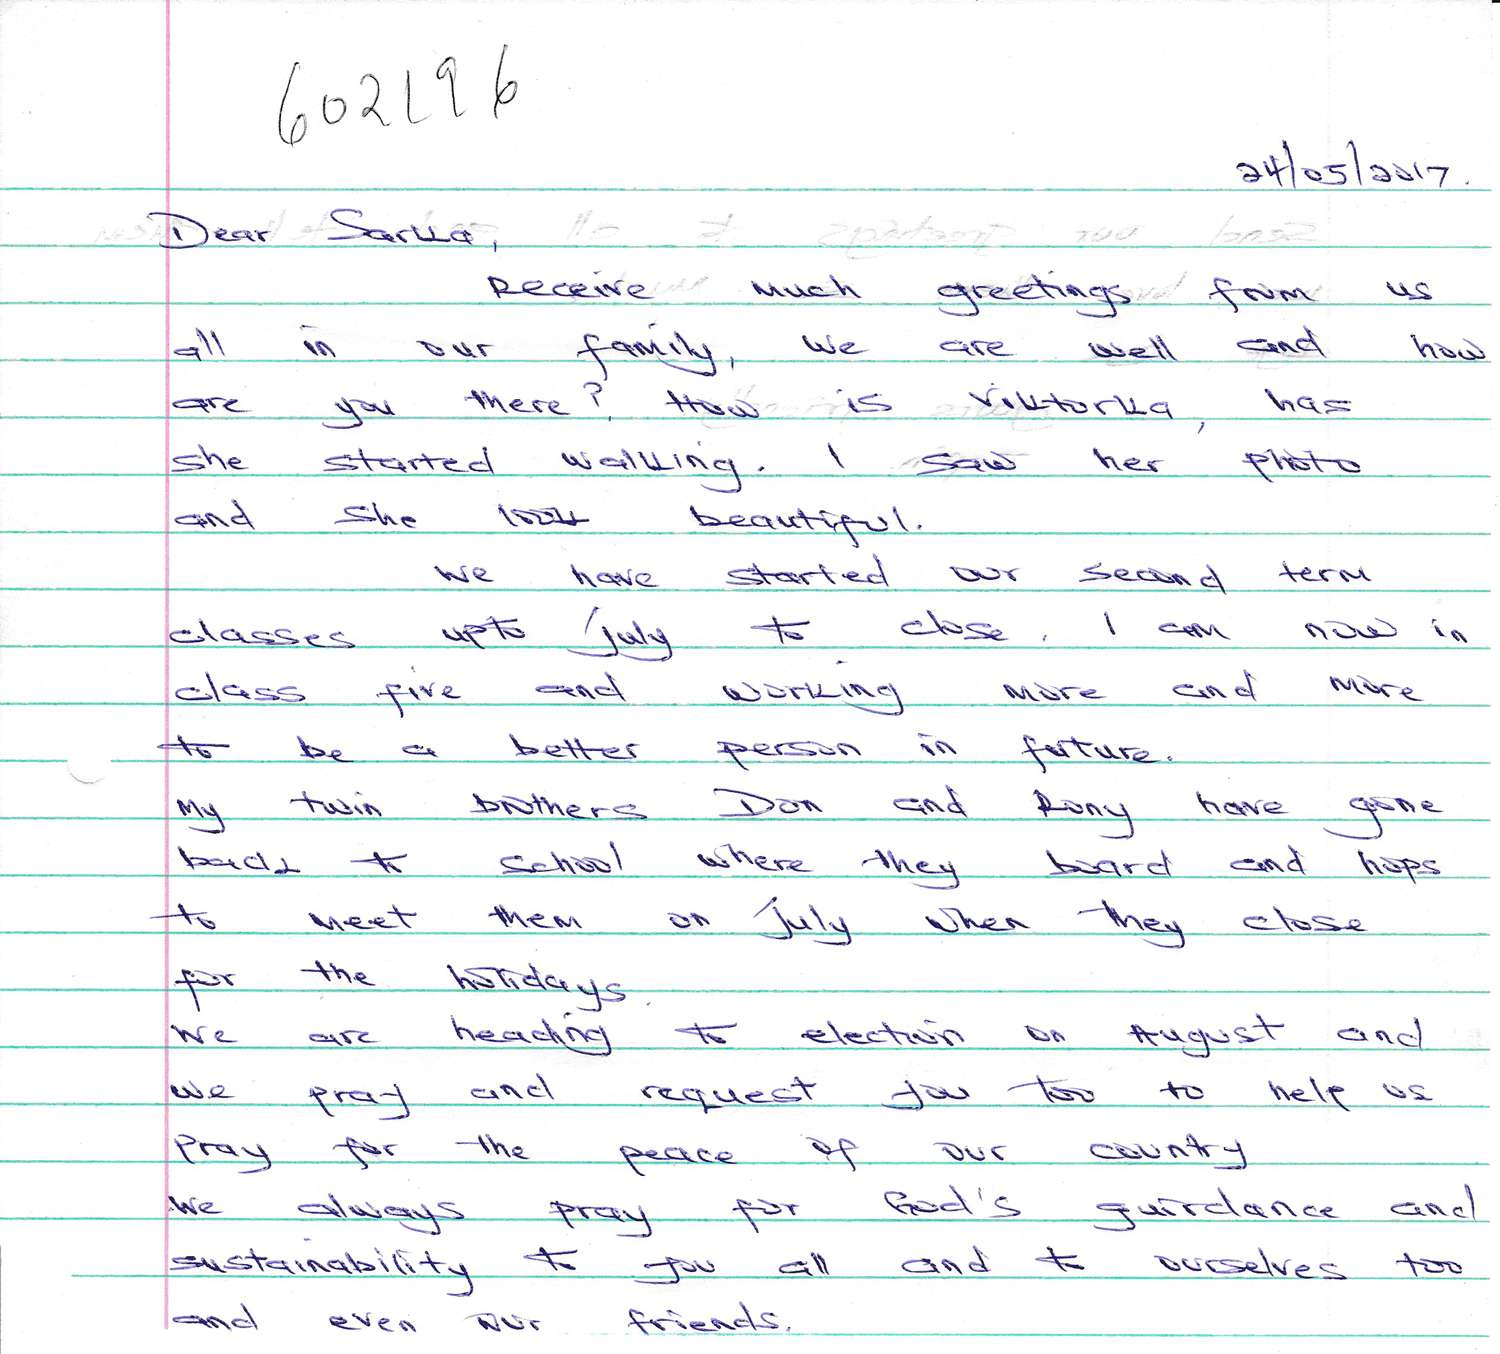 602196
24/05/2017.
Dear Sarka,
Receive much greetings from us
all in our family, we are well and how
are you there? How is Viktorka, has
she started walking. I saw her photo
and she look beautiful.
We have started our second term
classes upto july to close. I am now in
class five and working more and more
to be a better person in future.
My twin brothers Don and Rony have gone
back to school where they board and hops
to meet them on july when they close
for the holidays.
We are heading to election on August and
we pray and request you too to help us
pray for the peace of our country
We always pray for God's guirdance and
sustainability to you all and to ourselves too
and even our friends.